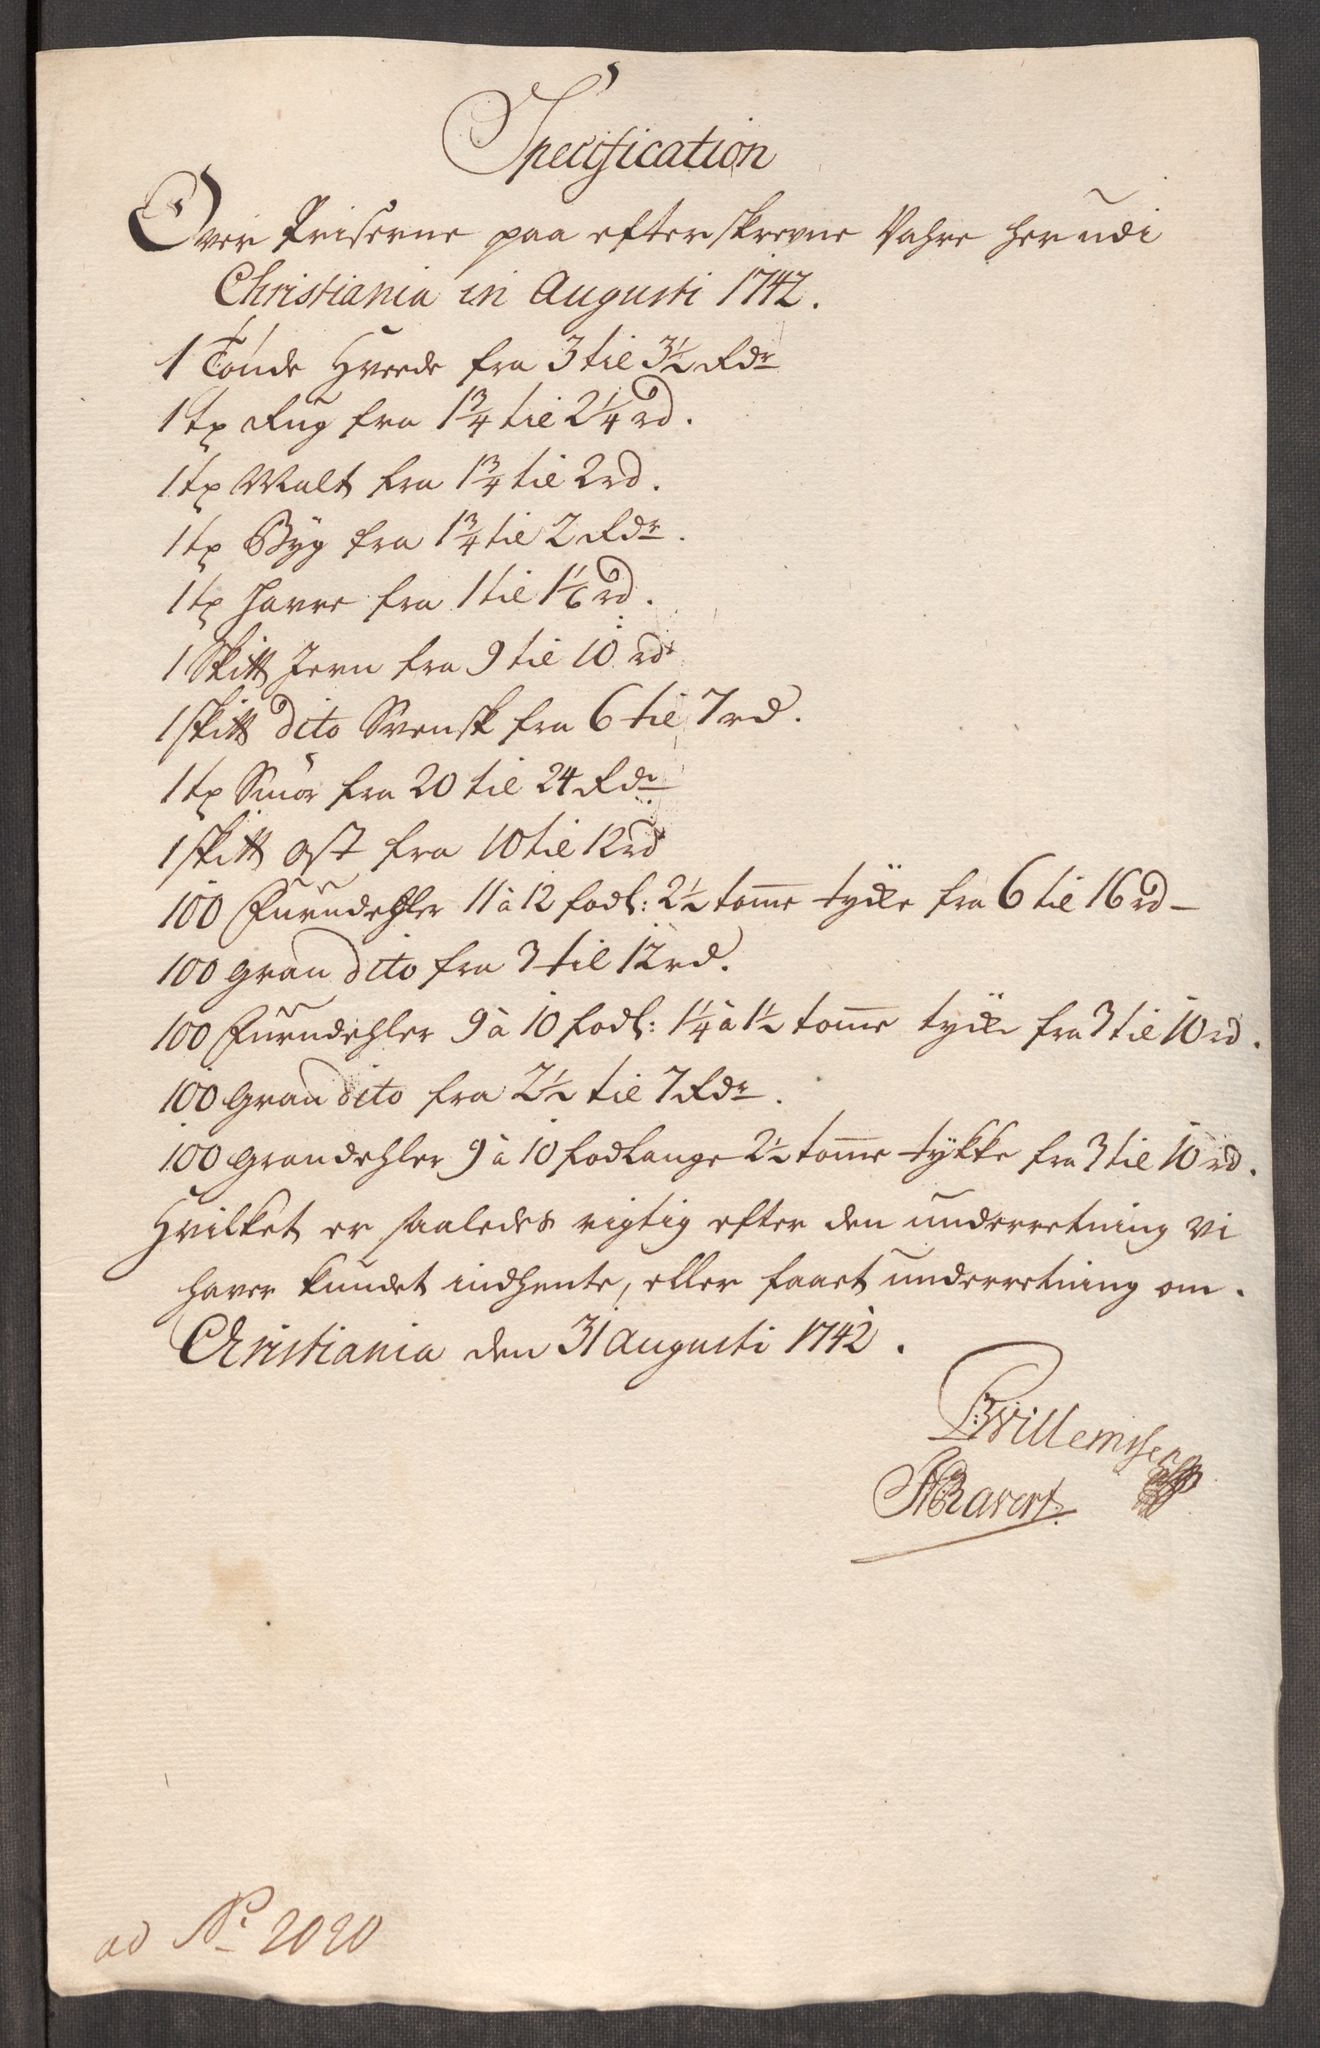 Specification
Over Priserne paa efterskrevne Vahre her udi
Christiania in Augusti 1742.
1 Tönde Hvede fra 3 til 3½ Rdr
1 tø Rug fra 1¾ til 2¼ rd.
1 tø Malt fra 1¾ til 2 rd.
1 tø Byg fra 1¾ til 2 Rdr.
1 tø Havre fra 1 til 1⅙ rd.
1 Skitt Jern fra 9 til 10 rdr
1 skitt dito Svensk fra 6 til 7 rd.
1 tø Smör fra 20 til 24 Rdr
1 skitt ost fra 10 til 12 rd
100 Furudehler 11 à 12 fodl: 2½ tomme tycke fra 6 til 16 rd –
100 gran dito fra 3 til 12 rd.
100 Furudehler 9 à 10 fodl: 1¼ à 1½ tomme tycke fra 3 til 10 rd.
100 Gran dito fra 2½ til 7 Rdr.
100 Grandehler 9 à 10 fodlange 2½ tomme tykke fra 3 til 10 rd.
Hvilket er saaledes rigtig efter den underretning vi
haver kundet indhente, eller faaet underretning om.
Christiania den 31 Augusti 1742.
Willemssen
Ravert
ad No 2020